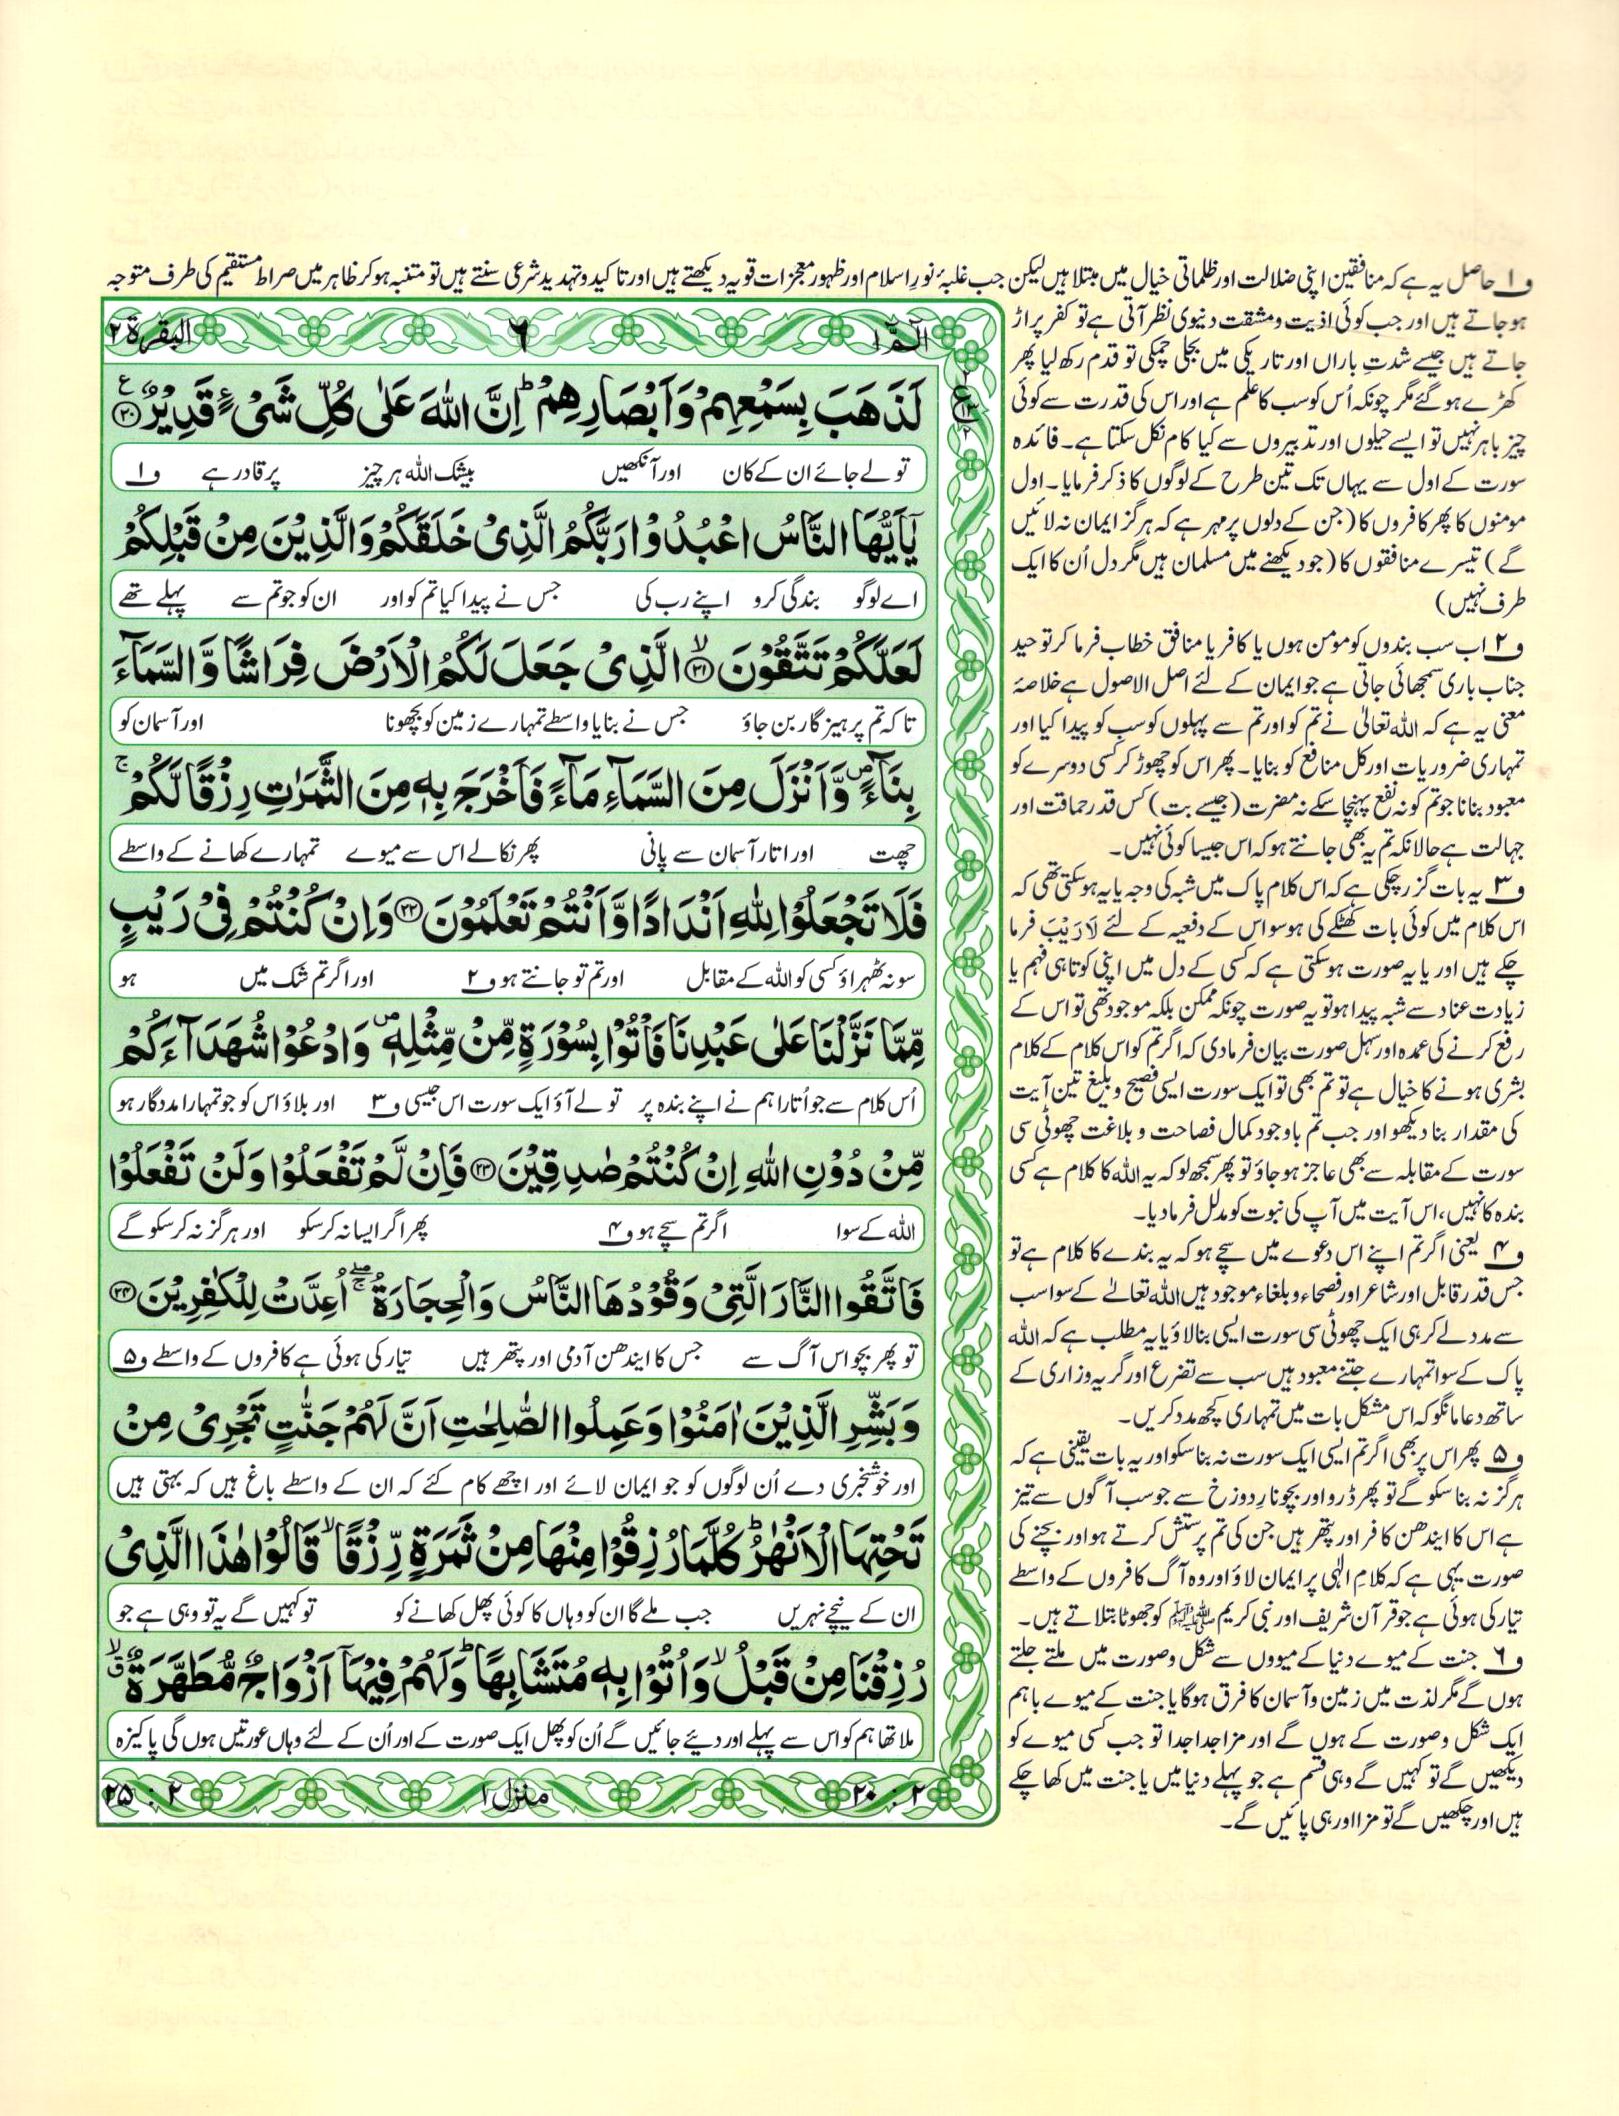 ف۱ حاصل یہ ہے کہ منافقین اپنی ضلالت اور ظلماتی خیال میں مبتلا ہیں لیکن جب غلبۂ نورِ اسلام اور ظہور معجزات قویہ دیکھتے ہیں اور تاکید و تہدید شرعی سنتے ہیں تو متنبہ ہو کر ظاہر میں صراط مستقیم کی طرف متوجہ
ہو جاتے ہیں اور جب کوئی اذیت و مشقت دنیوی نظر آتی ہے تو کفر پر اڑ
جاتے ہیں جیسے شدتِ باراں اور تاریکی میں بجلی چمکی تو قدم رکھ لیا پھر
کھڑے ہو گئے مگر چونکہ اُس کو سب کا علم ہے اور اس کی قدرت سے کوئی
چیز باہر نہیں تو ایسے حیلوں اور تدبیروں سے کیا کام نکل سکتا ہے۔ فائدہ
سورت کے اول سے یہاں تک تین طرح کے لوگوں کا ذکر فرمایا۔ اول
مومنوں کا پھر کافروں کا (جن کے دلوں پر مہر ہے کہ ہرگز ایمان نہ لائیں
گے) تیسرے منافقوں کا (جو دیکھنے میں مسلمان ہیں مگر دل اُن کا ایک
طرف نہیں)
ف۲ اب سب بندوں کو مومن ہوں یا کافر یا منافق خطاب فرما کر توحید
جناب باری سمجھائی جاتی ہے جو ایمان کے لئے اصل الاصول ہے خلاصۂ
معنی یہ ہے کہ اللہ تعالیٰ نے تم کو اور تم سے پہلوں کو سب کو پیدا کیا اور
تمہاری ضروریات اور کل منافع کو بنایا۔ پھر اس کو چھوڑ کر کسی دوسرے کو
معبود بنانا جو تم کو نہ نفع پہنچا سکے نہ مضرت (جیسے بت) کس قدر حماقت اور
جہالت ہے حالانکہ تم یہ بھی جانتے ہو کہ اس جیسا کوئی نہیں۔
ف۳ یہ بات گزر چکی ہے کہ اس کلام پاک میں شبہ کی وجہ یا یہ ہو سکتی تھی کہ
اس کلام میں کوئی بات کھٹکے کی ہو سو اس کے دفعیہ کے لئے لَا رَیْبَ فرما
چکے ہیں اور یا یہ صورت ہو سکتی ہے کہ کسی کے دل میں اپنی کوتاہی فہم یا
زیادت عناد سے شبہ پیدا ہو تو یہ صورت چونکہ ممکن بلکہ موجود تھی تو اس کے
رفع کرنے کی عمدہ اور سہل صورت بیان فرما دی کہ اگر تم کو اس کلام کے کلام
بشری ہونے کا خیال ہے تو تم بھی تو ایک سورت ایسی فصیح و بلیغ تین آیت
کی مقدار بنا دیکھو اور جب تم باوجود کمال فصاحت و بلاغت چھوٹی سی
سورت کے مقابلہ سے بھی عاجز ہو جاؤ تو پھر سمجھ لو کہ یہ اللہ کا کلام ہے کسی
بندہ کا نہیں، اس آیت میں آپ کی نبوت کو مدلل فرما دیا۔
ف۴ یعنی اگر تم اپنے اس دعوے میں سچے ہو کہ یہ بندے کا کلام ہے تو
جس قدر قابل اور شاعر اور فصحاء و بلغاء موجود ہیں اللہ تعالےٰ کے سوا سب
سے مدد لے کر ہی ایک چھوٹی سی سورت ایسی بنا لاؤ یا یہ مطلب ہے کہ اللہ
پاک کے سوا تمہارے جتنے معبود ہیں سب سے تضرع اور گریہ وزاری کے
ساتھ دعا مانگو کہ اس مشکل بات میں تمہاری کچھ مدد کریں۔
ف۵ پھر اس پر بھی اگر تم ایسی ایک سورت نہ بنا سکو اور یہ بات یقینی ہے کہ
ہرگز نہ بنا سکو گے تو پھر ڈرو اور بچو نارِ دوزخ سے جو سب آگوں سے تیز
ہے اس کا ایندھن کافر اور پتھر ہیں جن کی تم پرستش کرتے ہو اور بچنے کی
صورت یہی ہے کہ کلامِ الٰہی پر ایمان لاؤ اور وہ آگ کافروں کے واسطے
تیار کی ہوئی ہے جو قرآن شریف اور نبی کریم ﷺ کو جھوٹا بتلاتے ہیں۔
ف۶ جنت کے میوے دنیا کے میووں سے شکل و صورت میں ملتے جلتے
ہوں گے مگر لذت میں زمین و آسمان کا فرق ہوگا یا جنت کے میوے باہم
ایک شکل و صورت کے ہوں گے اور مزا جدا جدا تو جب کسی میوے کو
دیکھیں گے تو کہیں گے وہی قسم ہے جو پہلے دنیا میں یا جنت میں کھا چکے
ہیں اور چکھیں گے تو مزا اور ہی پائیں گے۔
الٓمّٓ ۱ ۶ البقرة ۲
لَذَهَبَ بِسَمْعِهِمْ وَاَبْصَارِهِمْ ؕ اِنَّ اللّٰهَ عَلٰى كُلِّ شَیْءٍ قَدِیْرٌ ﴿۲۰﴾ ع
تو لے جائے ان کے کان اور آنکھیں بیشک اللہ ہر چیز پر قادر ہے ف۱
یٰۤاَیُّهَا النَّاسُ اعْبُدُوْا رَبَّكُمُ الَّذِیْ خَلَقَكُمْ وَالَّذِیْنَ مِنْ قَبْلِكُمْ
اے لوگو بندگی کرو اپنے رب کی جس نے پیدا کیا تم کو اور ان کو جو تم سے پہلے تھے
لَعَلَّكُمْ تَتَّقُوْنَ ﴿۲۱﴾ۙ الَّذِیْ جَعَلَ لَكُمُ الْاَرْضَ فِرَاشًا وَّالسَّمَآءَ
تاکہ تم پرہیزگار بن جاؤ جس نے بنایا واسطے تمہارے زمین کو بچھونا اور آسمان کو
بِنَآءً ۪ وَّاَنْزَلَ مِنَ السَّمَآءِ مَآءً فَاَخْرَجَ بِهٖ مِنَ الثَّمَرٰتِ رِزْقًا لَّكُمْ ۚ
چھت اور اتارا آسمان سے پانی پھر نکالے اس سے میوے تمہارے کھانے کے واسطے
فَلَا تَجْعَلُوْا لِلّٰهِ اَنْدَادًا وَّاَنْتُمْ تَعْلَمُوْنَ ﴿۲۲﴾ وَاِنْ كُنْتُمْ فِیْ رَیْبٍ
سو نہ ٹھہراؤ کسی کو اللہ کے مقابل اور تم تو جانتے ہو ف۲ اور اگر تم شک میں ہو
مِّمَّا نَزَّلْنَا عَلٰى عَبْدِنَا فَاْتُوْا بِسُوْرَةٍ مِّنْ مِّثْلِهٖ ۪ وَادْعُوْا شُهَدَآءَكُمْ
اُس کلام سے جو اُتارا ہم نے اپنے بندہ پر تو لے آؤ ایک سورت اس جیسی ف۳ اور بلاؤ اس کو جو تمہارا مددگار ہو
مِّنْ دُوْنِ اللّٰهِ اِنْ كُنْتُمْ صٰدِقِیْنَ ﴿۲۳﴾ فَاِنْ لَّمْ تَفْعَلُوْا وَلَنْ تَفْعَلُوْا
اللہ کے سوا اگر تم سچے ہو ف۴ پھر اگر ایسا نہ کر سکو اور ہرگز نہ کر سکو گے
فَاتَّقُوا النَّارَ الَّتِیْ وَقُوْدُهَا النَّاسُ وَالْحِجَارَةُ ۖۚ اُعِدَّتْ لِلْكٰفِرِیْنَ ﴿۲۴﴾
تو پھر بچو اس آگ سے جس کا ایندھن آدمی اور پتھر ہیں تیار کی ہوئی ہے کافروں کے واسطے ف۵
وَبَشِّرِ الَّذِیْنَ اٰمَنُوْا وَعَمِلُوا الصّٰلِحٰتِ اَنَّ لَهُمْ جَنّٰتٍ تَجْرِیْ مِنْ
اور خوشخبری دے اُن لوگوں کو جو ایمان لائے اور اچھے کام کئے کہ ان کے واسطے باغ ہیں کہ بہتی ہیں
تَحْتِهَا الْاَنْهٰرُ ؕ كُلَّمَا رُزِقُوْا مِنْهَا مِنْ ثَمَرَةٍ رِّزْقًا ۙ قَالُوْا هٰذَا الَّذِیْ
ان کے نیچے نہریں جب ملے گا ان کو وہاں کا کوئی پھل کھانے کو تو کہیں گے یہ تو وہی ہے جو
رُزِقْنَا مِنْ قَبْلُ ۙ وَاُتُوْا بِهٖ مُتَشَابِهًا ؕ وَلَهُمْ فِیْهَاۤ اَزْوَاجٌ مُّطَهَّرَةٌ ۗۙ
ملا تھا ہم کو اس سے پہلے اور دیئے جائیں گے اُن کو پھل ایک صورت کے اور اُن کے لئے وہاں عورتیں ہوں گی پاکیزہ
۲ : ۲۰ منزل ۱ ۲ : ۲۵